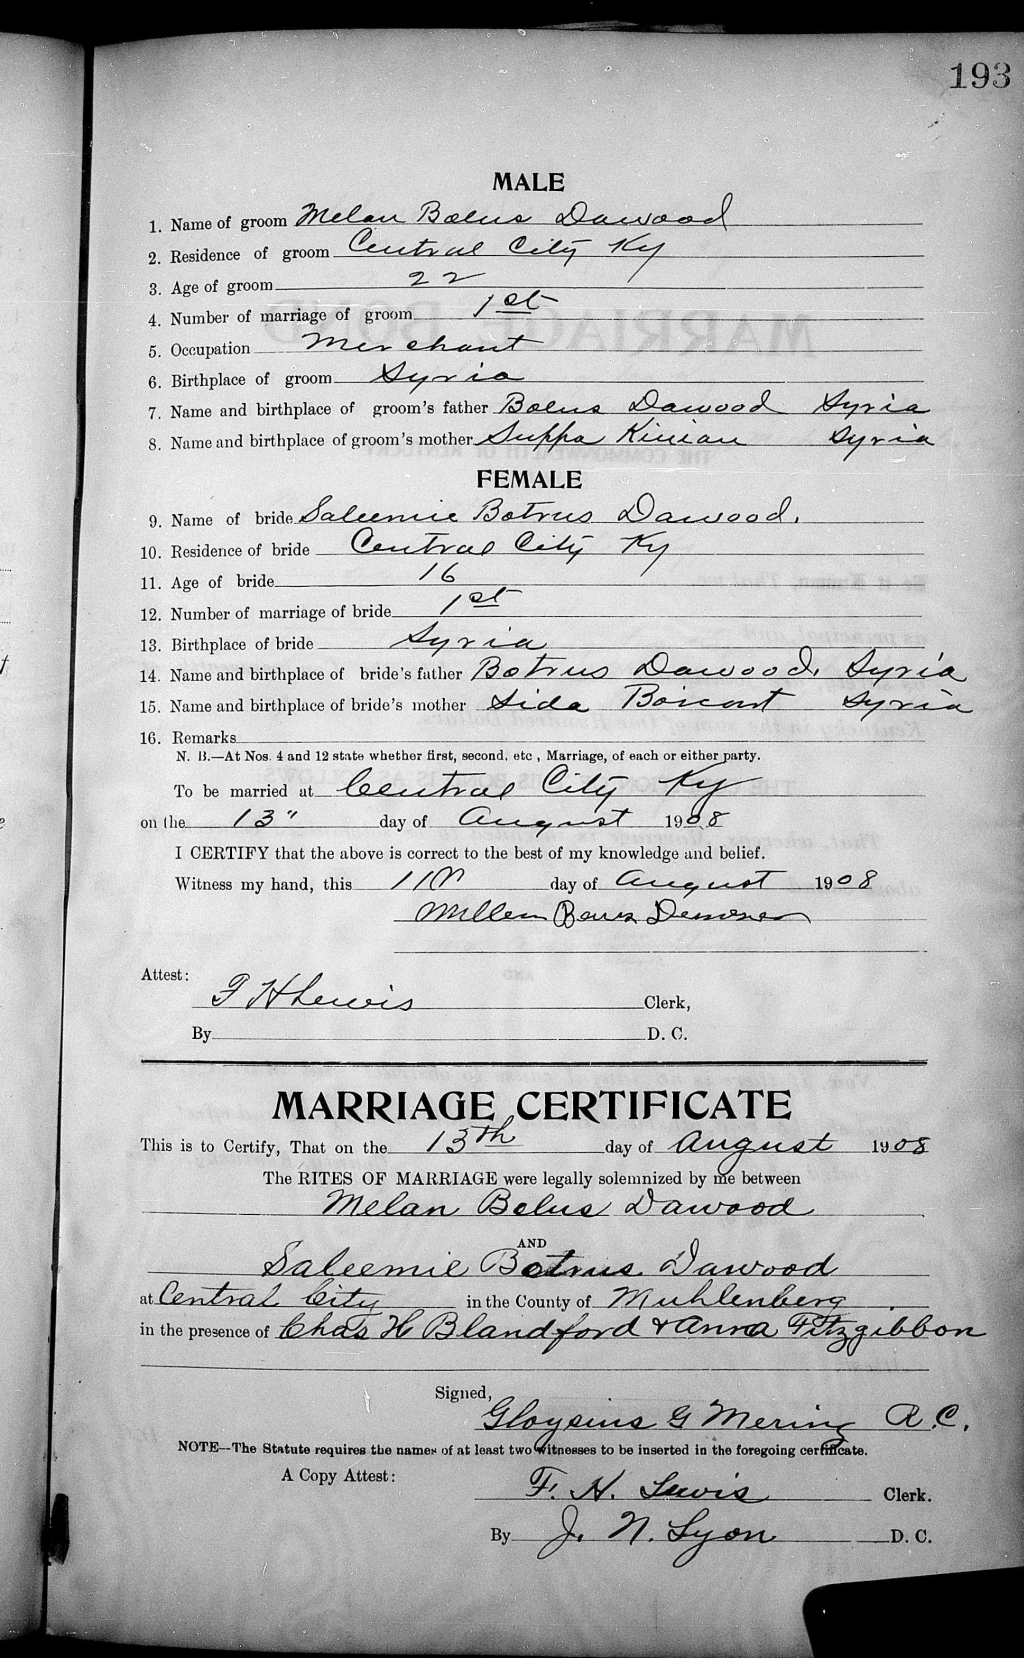 193
MALE
1. Name of groom Melan Boeus Dawood
2. Residence of groom Central City Ky
3. Age of groom 22
4. Number of marriage of groom 1st
5. Occupation Merchant
6. Birthplace of groom Syria
7. Name and birthplace of groom's father Boeus Dawood Syria
8. Name and birthplace of groom's mother Suppa Syria
FEMALE
9. Name of bride Saleemie Botrus Dawood.
10. Residence of bride Central City Ky
11. Age of bride 16
12. Number of marriage of bride 1st
13. Birthplace of bride Syria
14. Name and birthplace of bride's father Botrus Dawood, Syria
15. Name and birthplace of bride's mother Sida Syria
16. Remarks
N. B.—At Nos. 4 and 12 state whether first, second, etc, Marriage, of each or either party.
To be married at Central City Ky
on the 13" day of August 1908
I CERTIFY that the above is correct to the best of my knowledge and belief.
Witness my hand, this 11 day of August 1908
Attest:
F H Lewis Clerk,
By D. C.
MARRIAGE CERTIFICATE
This is to Certify, That on the 13th day of August 1908
The RITES OF MARRIAGE were legally solemnized by me between
Melan Belus Dawood
AND
Saleemie Botrus Dawood
at Central City in the County of Muhlenberg
in the presence of Chas H Blandford & Anna Fitzgibbon
Signed,
Gloysius G Mering R.C.
NOTE--The Statute requires the names of at least two witnesses to be inserted in the foregoing certificate.
A Copy Attest:
F. H. Lewis Clerk.
By J. N. Lyon D. C.